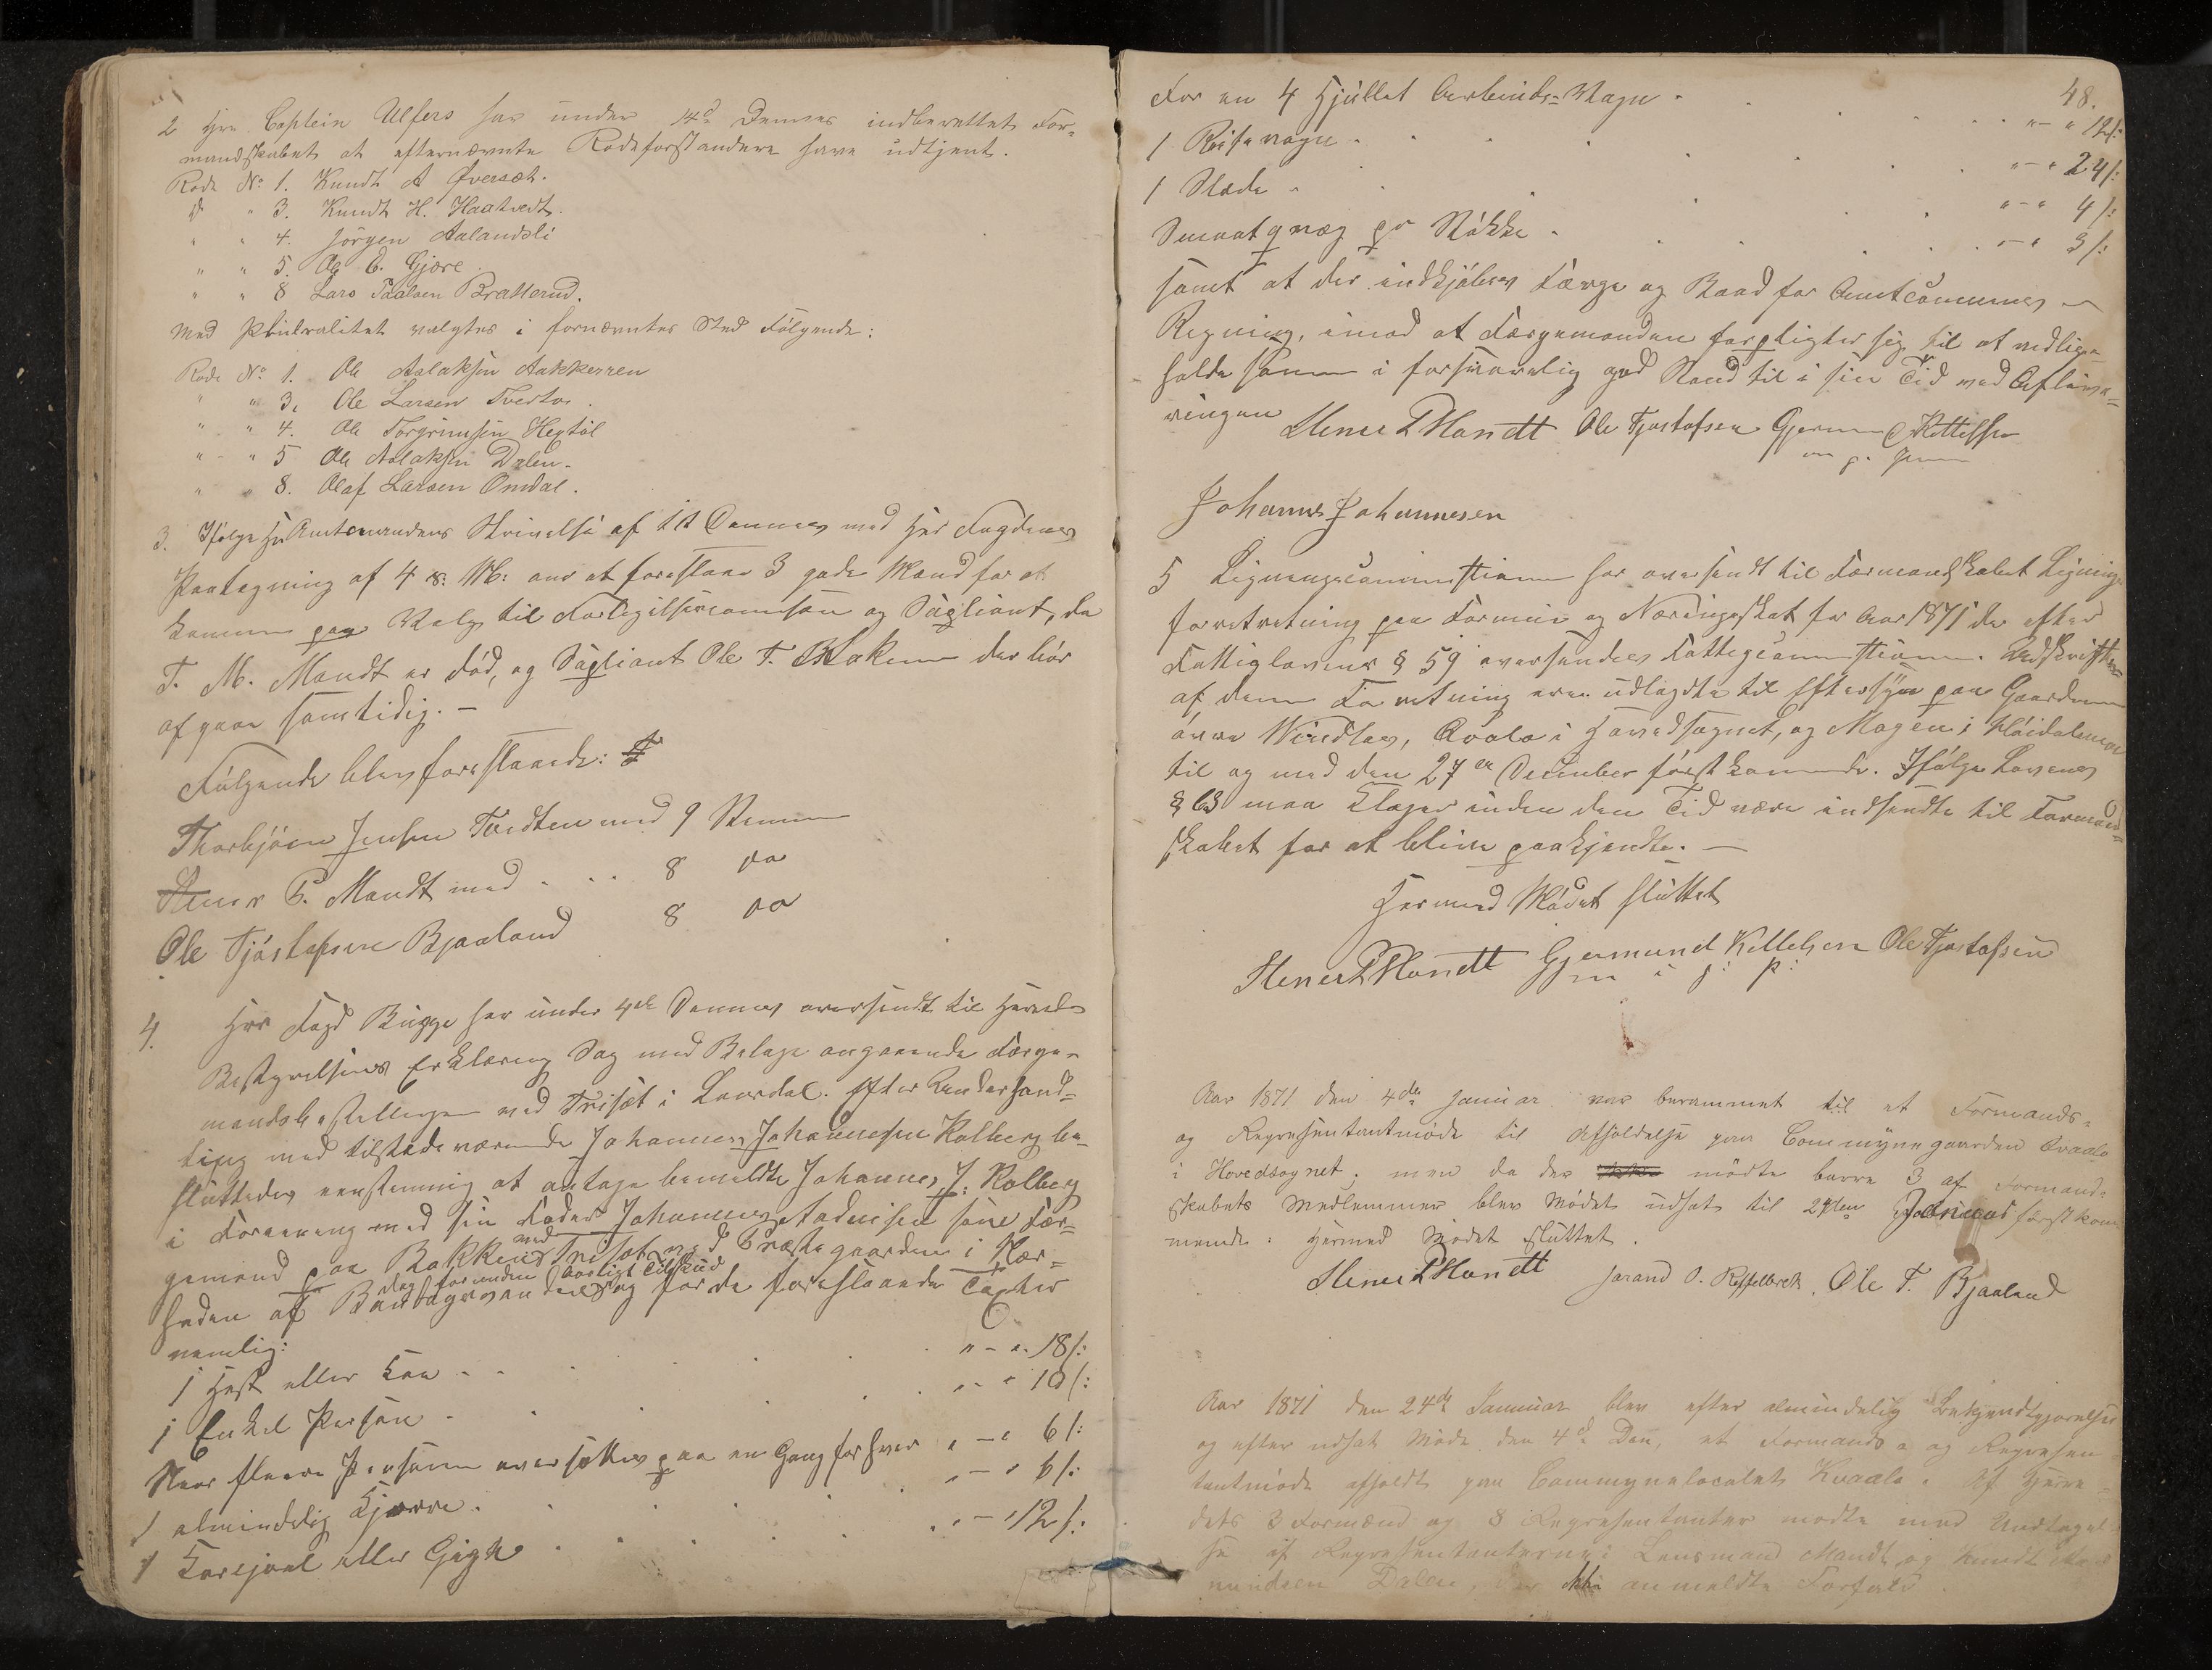 2 Hrr. Captein Ulfers har under 14de Dennes indberettet For-
mandskabet at efternævnte Rodeforstandere have udtjent.
Rode No 1. Knudt A Øversæt.
D " 3. Knudt H. Haatvedt.
" " 4. Jörgen Aalandsli
" " 5. Ole E. Gjære
" " 8 Lars Paalsen Bratterud.
Med Pluralitet valgtes i fornævntes Sted Følgende:
Rode No 1. Ole Aslaksen Aakkerren
" " 3. Ole Larsen Tvedto
" " 4. Ole Torgrimsen Hegtöl
" " 5 Ole Aslaksen Dalen.
" " 8. Olaf Larsen Omdal.
3. Ifølge Hr Amtmandens Skrivelse af 1st Dennes med Her Fogdens
Paategning af 4 s: M: om at foreslaae 3 gode Mænd for at
komme paa Valg til Forligelsescommision og, da
T. M. Mandt er død, og Ole T. der bør
afgaae samtidig. -
Følgende blev foreslaaede:
Thorbjörn Jensen Tvedten med 9 Stemmer
Stener P. Mandt med . . . 8 do
Ole Tjöstofsen Bjaaland 8 do
4. Hrr Fogd Bugge har under 4de Dennes oversendt til Herreds
Bestyrelsens Erklæring Sag med Bilage angaaende Færge-
mandsbestillingen ved Trisæt i Laurdal. Efter Underhand-
ling med tilstedeværende Johannes Johannesen Kolberg be-
sluttedes eenstemmig at antage bemeldte Johannes J. Kolberg
i Forening med sin Fader Johannes som Fær-
gemand paa Bakken med Trisæt med Præstegaarden i Nær-
heden af Bandagsvandet dog foruden aarligt Tilskud og for de foreslaaede Taxter
nemlig:
1 Hest eller Koe . . . " - " 18/:
1 Enkel Person . . . " - " 10/:
Naar fleere Personer oversættes paa en Gang for hver " - " 6/:
1 almindelig Kjærre . . . " - " 6/:
1 Karejol eller Gigh . . . " - " 12/:
48.
For en 4 Hjullet Arbeids-Vogn . . . " - " 12/:
1 Reisevogn . . . " - " 24/:
1 Slæde . . . " - " 4/:
Smaatqvæg pr Stökke . . . " - " 3/:
samt at der indkjöbes Færge og Baad for Amtcommunens
Regning, imod at Færgemanden forpligter sig til at vedlige-
holde samme i forsvarelig god Stand til i sin Tid ved Afleve-
ringen
Stener P Mandt Ole Tjostofsen Gjermund Kittelsen
m. p. Penn
Johannes Johannesen
5 Ligningscommissionen har oversendt til Formandskabet Lignings
forretretning paa Formue og Næringsskat for Aar 1871 der efter
Fattiglovens § 59 oversendes Fattigcommissionen. Udskrifter
af denne Forretning ere udlagdte til Eftersyn paa Gaardene
övre Vindlaus, Qvala i Hovedsognet, og Mogen i Höidalsmo
til og med den 27de December förstkommende. Ifølge Lovens
§ 63 maa Klager inden den Tid være indsendte til Formand-
skabet for at blive paakjendte. -
Hermed Mödet sluttet
Stener P Mandt Gjermund Kittelsen Ole Tjostofsen
m i p: p:
Aar 1871 den 4de Januar var berammet til et Formands-
og Repræsentantmöde til Afholdelse paa Communegaarden Qvaala
i Hovedsognet; men da der mödte barre 3 af Formand-
skabets Medlemmer blev Mödet udsat til 24den Januar först kom-
mende. Hermed Mödet sluttet.
Stener P Mandt Jorand O. Ole T. Bjaaland
Aar 1871 den 24de Januar blev efter almindelig Bekjendtgjørelse
og efter udsat Möde den 4de Den, et Formands- og Repræsen
tantmöde afholdt paa Communelocalet Kvaala. Af Herre-
dets 3 Formænd og 8 Repræsentanter mödte med Undtagel-
se af Repræsentanterne: Lensmand Mandt og Knudt
mundsen Dalen, der ikke anmeldte Forfald.